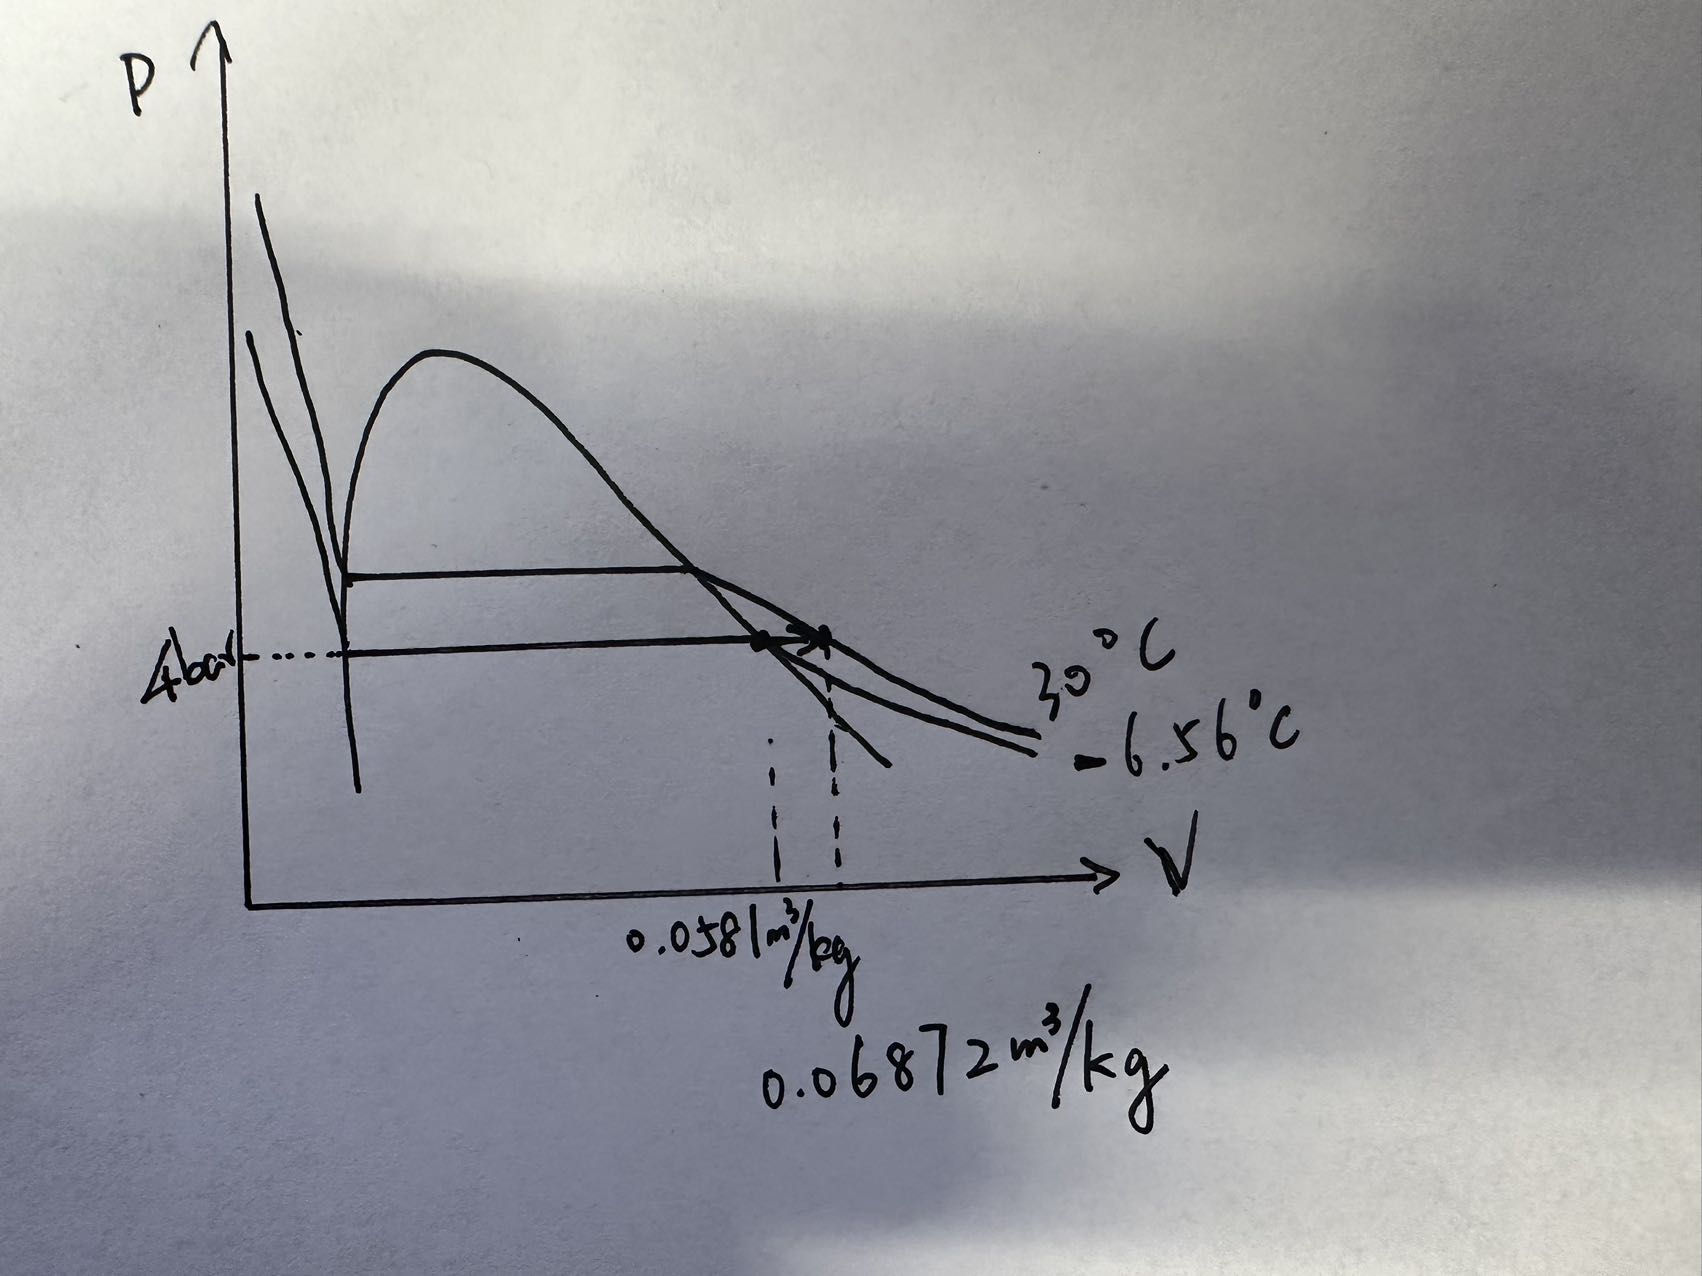 P
4bar
30°C
-6.56°C
V
0.0581m³/kg
0.06872m³/kg